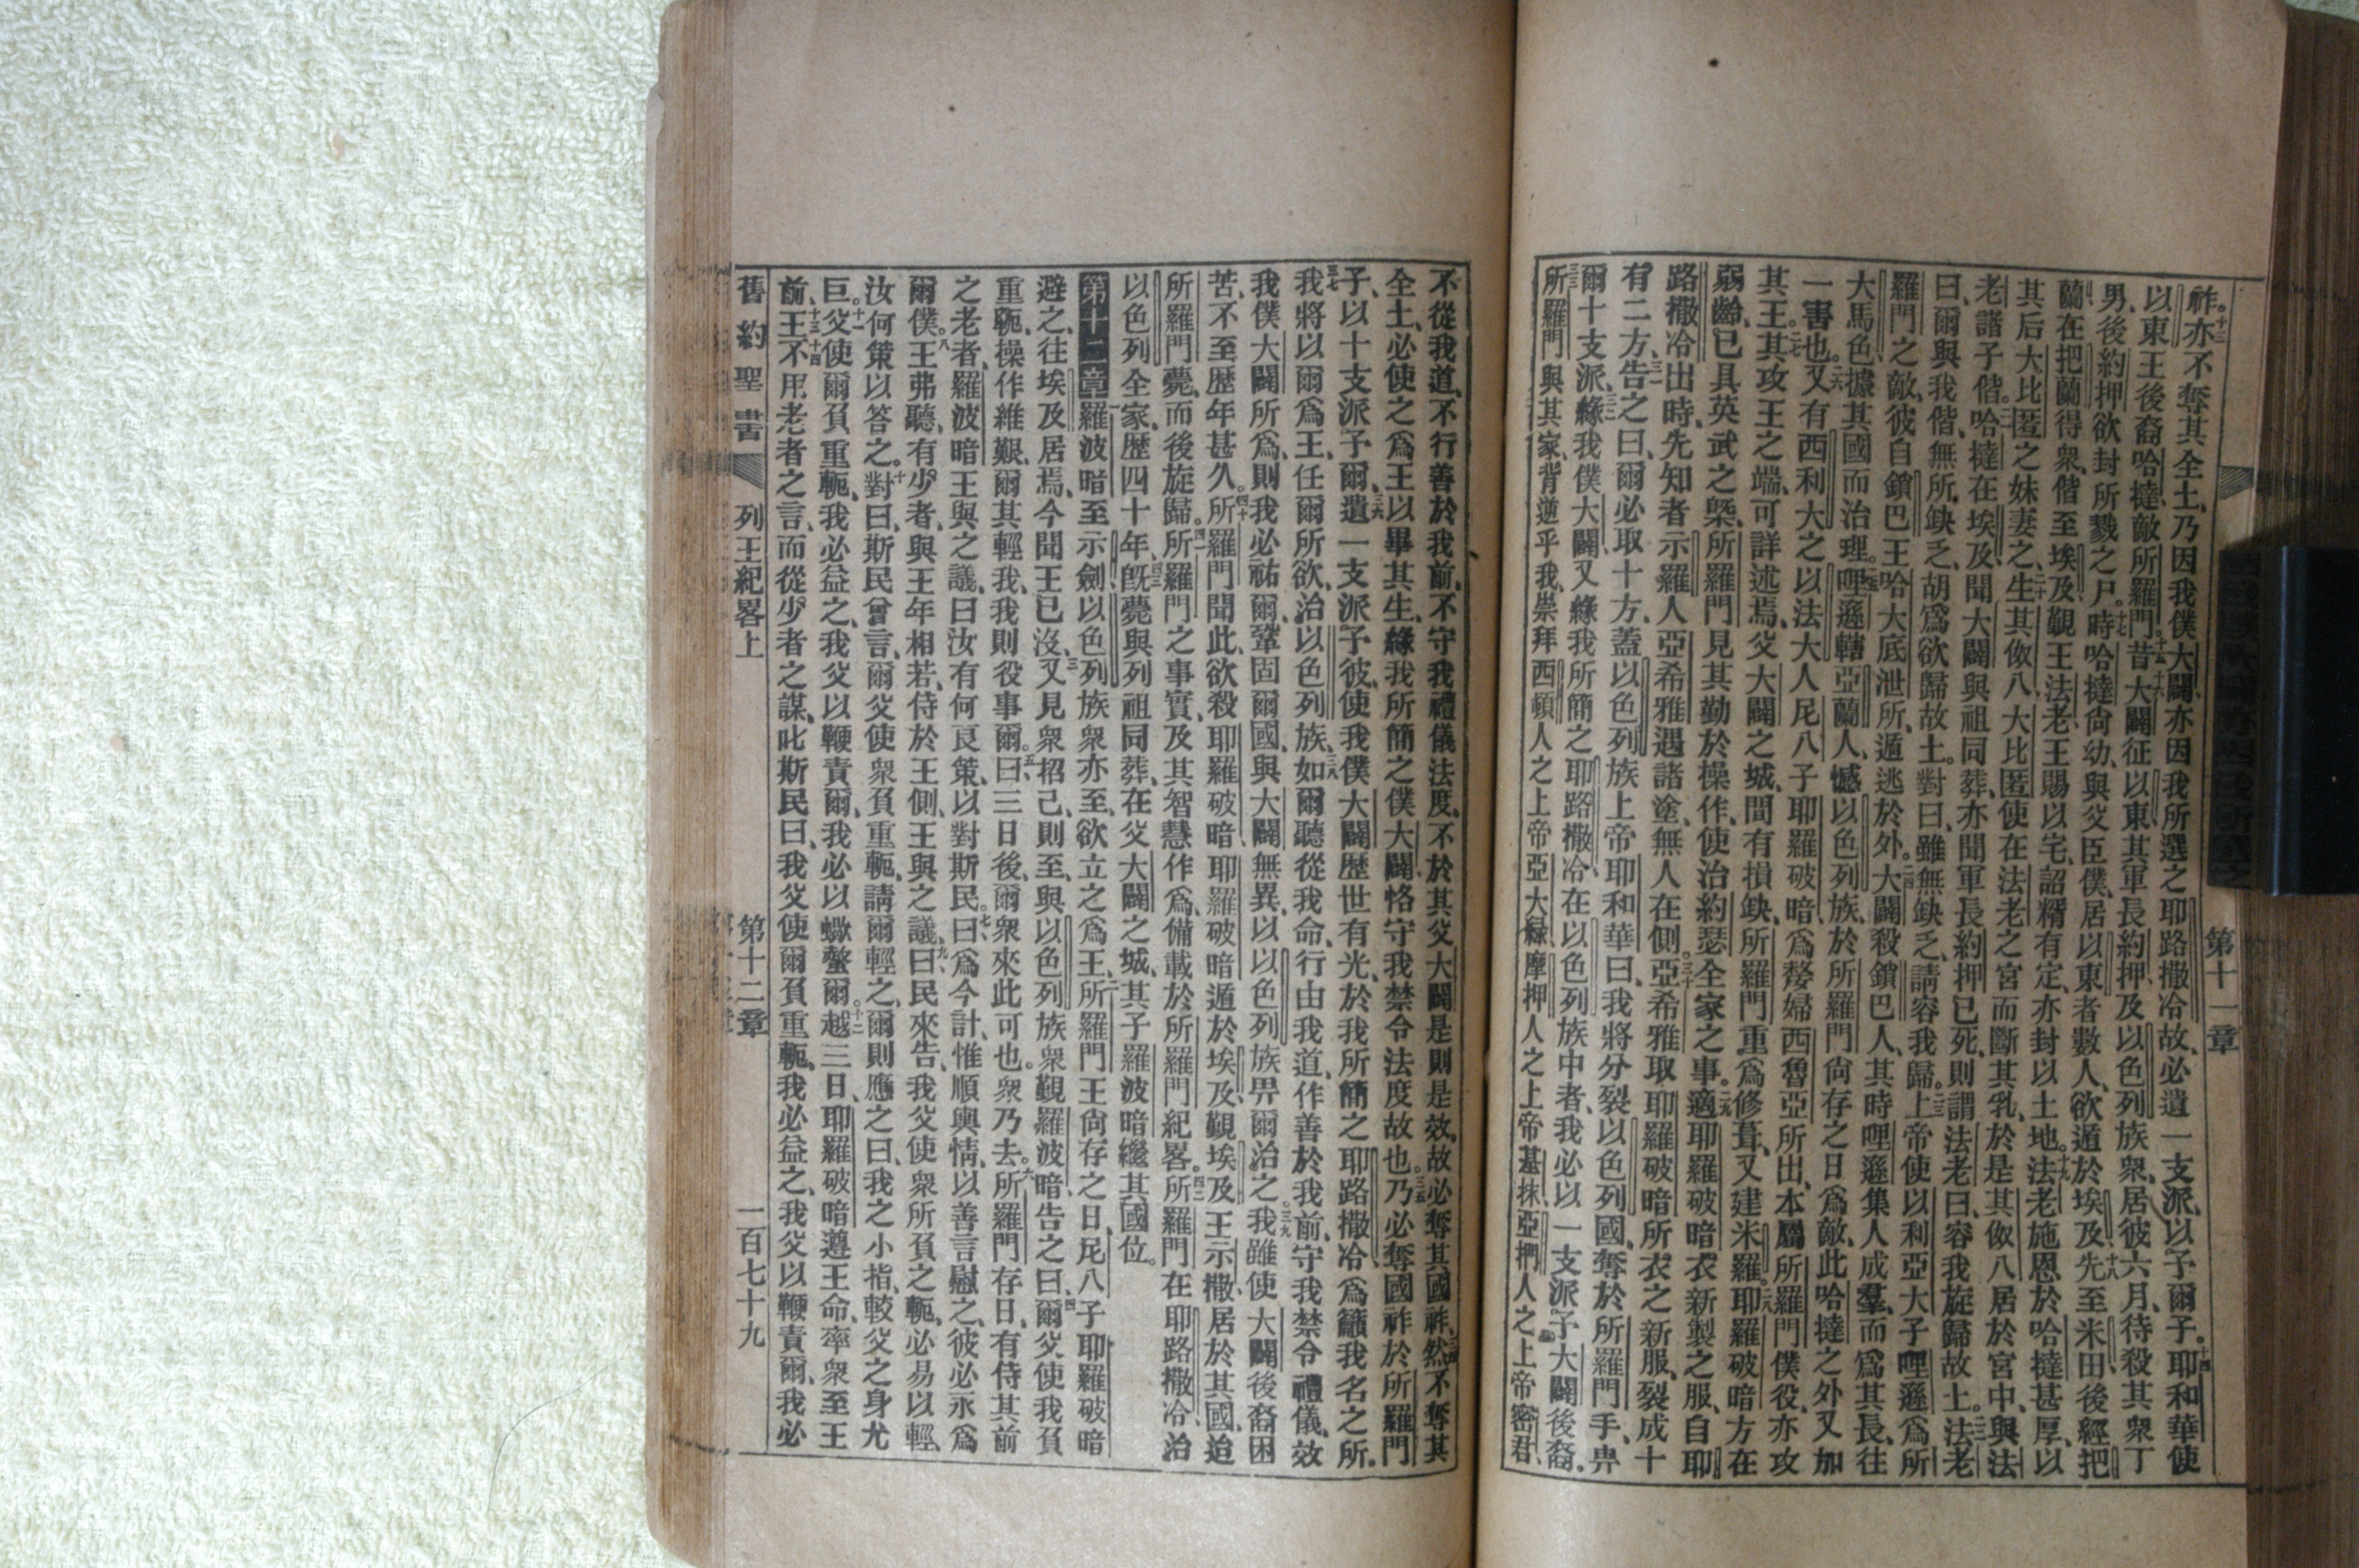 第十一章
祚。十三亦不奪其全土、乃因我僕大闢、亦因我所選之耶路撒冷故、必遺一支派、以予爾子。十四耶和華使
以東王後裔哈撻、敵所羅門。十五十六昔大闢征以東、其軍長約押、及以色列族衆、居彼六月、待殺其衆丁
男、後約押欲封所戮之尸。十七時哈撻尙幼、與父臣僕、居以東者數人、欲遁於埃及、十八先至米田、後經把
蘭、在把蘭得衆、偕至埃及、覲王法老、王賜以宅、詔糈有定、亦封以土地。十九法老施恩於哈撻甚厚、以
其后大比匿之妹妻之、二十生其伮八、大比匿使在法老之宮而斷其乳、於是其伮八居於宮中、與法
老諸子偕。二一哈撻在埃及、聞大闢與祖同葬、亦聞軍長約押已死、則謂法老曰、容我旋歸故土。二二法老
曰、爾與我偕、無所缺乏、胡爲欲歸故土。對曰、雖無缺乏、請容我歸。二三上帝使以利亞大子哩遜、爲所
羅門之敵、彼自鎖巴王哈大底洩所、遁逃於外。二四大闢殺鎖巴人、其時哩遜集人成羣、而爲其長、往
大馬色、據其國而治理。二五哩遜轄亞蘭人、憾以色列族、於所羅門尙存之日爲敵、此哈撻之外、又加
一害也。二六又有西利大之以法大人尼八子耶羅破暗、爲嫠婦西魯亞所出、本屬所羅門僕役、亦攻
其王。二七其攻王之端、可詳述焉、父大闢之城、間有損缺、所羅門重爲修葺、又建米羅。二八耶羅破暗方在
弱齡、已具英武之槩、所羅門見其勤於操作、使治約瑟全家之事。二九適耶羅破暗衣新製之服、自耶
路撒冷出時、先知者示羅人亞希雅遇諸塗、無人在側。三十亞希雅取耶羅破暗所衣之新服、裂成十
有二方、三一告之曰、爾必取十方、蓋以色列族上帝耶和華曰、我將分裂以色列國、奪於所羅門手、畀
爾十支派、三二緣我僕大闢、又緣我所簡之耶路撒冷、在以色列族中者、我必以一支派、予大闢後裔。
三三所羅門與其家、背逆乎我、崇拜西頓人之上帝亞大綠、摩押人之上帝基抹、亞捫人之上帝密君、
不從我道、不行善於我前、不守我禮儀法度、不於其父大闢是則是效、故必奪其國祚、三四然不奪其
全土、必使之爲王、以畢其生、緣我所簡之僕大闢、恪守我禁令法度故也。三五乃必奪國祚於所羅門
子、以十支派予爾、三六遺一支派予彼、使我僕大闢歷世有光、於我所簡之耶路撒冷、爲籲我名之所。
三七我將以爾爲王、任爾所欲、治以色列族、三八如爾聽從我命、行由我道、作善於我前、守我禁令禮儀、效
我僕大闢所爲、則我必祐爾、鞏固爾國、與大闢無異、以以色列族畀爾治之。三九我雖使大闢後裔困
苦、不至歷年甚久。四十所羅門聞此、欲殺耶羅破暗、耶羅破暗遁於埃及、覲埃及王示撒、居於其國、迨
所羅門薨、而後旋歸。四一所羅門之事實、及其智慧作爲、備載於所羅門紀畧。四二所羅門在耶路撒冷、治
以色列全家、歷四十年、四三旣薨、與列祖同葬、在父大闢之城、其子羅波暗繼其國位。
第十二章一羅波暗至示劍、以色列族衆亦至、欲立之爲王、二所羅門王尙存之日、尼八子耶羅破暗
避之、往埃及居焉、今聞王已沒、三又見衆招己、則至、與以色列族衆、覲羅波暗、告之曰、四爾父使我負
重軛、操作維艱、爾其輕我、我則役事爾。五曰、三日後、爾衆來此可也。衆乃去。六所羅門存日、有侍其前
之老者、羅波暗王與之議、曰、汝有何良策、以對斯民。七曰、爲今計、惟順輿情、以善言慰之、彼必永爲
爾僕。八王弗聽、有少者、與王年相若、侍於王側、王與之議、九曰、民來告我父使衆所負之軛、必易以輕、
汝何策以答之。十對曰、斯民曾言、爾父使衆負重軛、請爾輕之、爾則應之曰、我之小指、較父之身尤
巨。十一父使爾負重軛、我必益之、我父以鞭責爾、我必以蠍螫爾。十二越三日、耶羅破暗遵王命、率衆至王
前、十三十四王不用老者之言、而從少者之謀、叱斯民曰、我父使爾負重軛、我必益之、我父以鞭責爾、我必
舊約聖書 列王紀畧上 第十二章 一百七十九